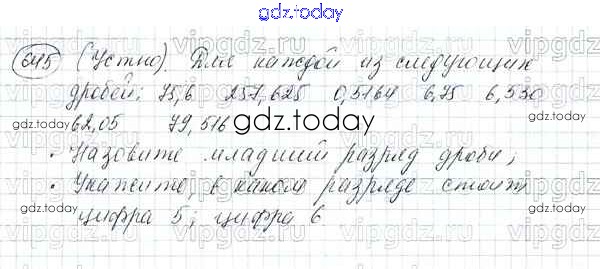 gdz.today
645 (Устно). Для каждой из следующих
дробей: 75,6 257,625 0,5164 6,75 6,530
62,05 79,516
• Назовите младший разряд дроби;
• Укажите, в каком разряде стоит
цифра 5; цифра 6.
gdz.today
gdz.today
gdz.today
gdz.today
gdz.today
gdz.today